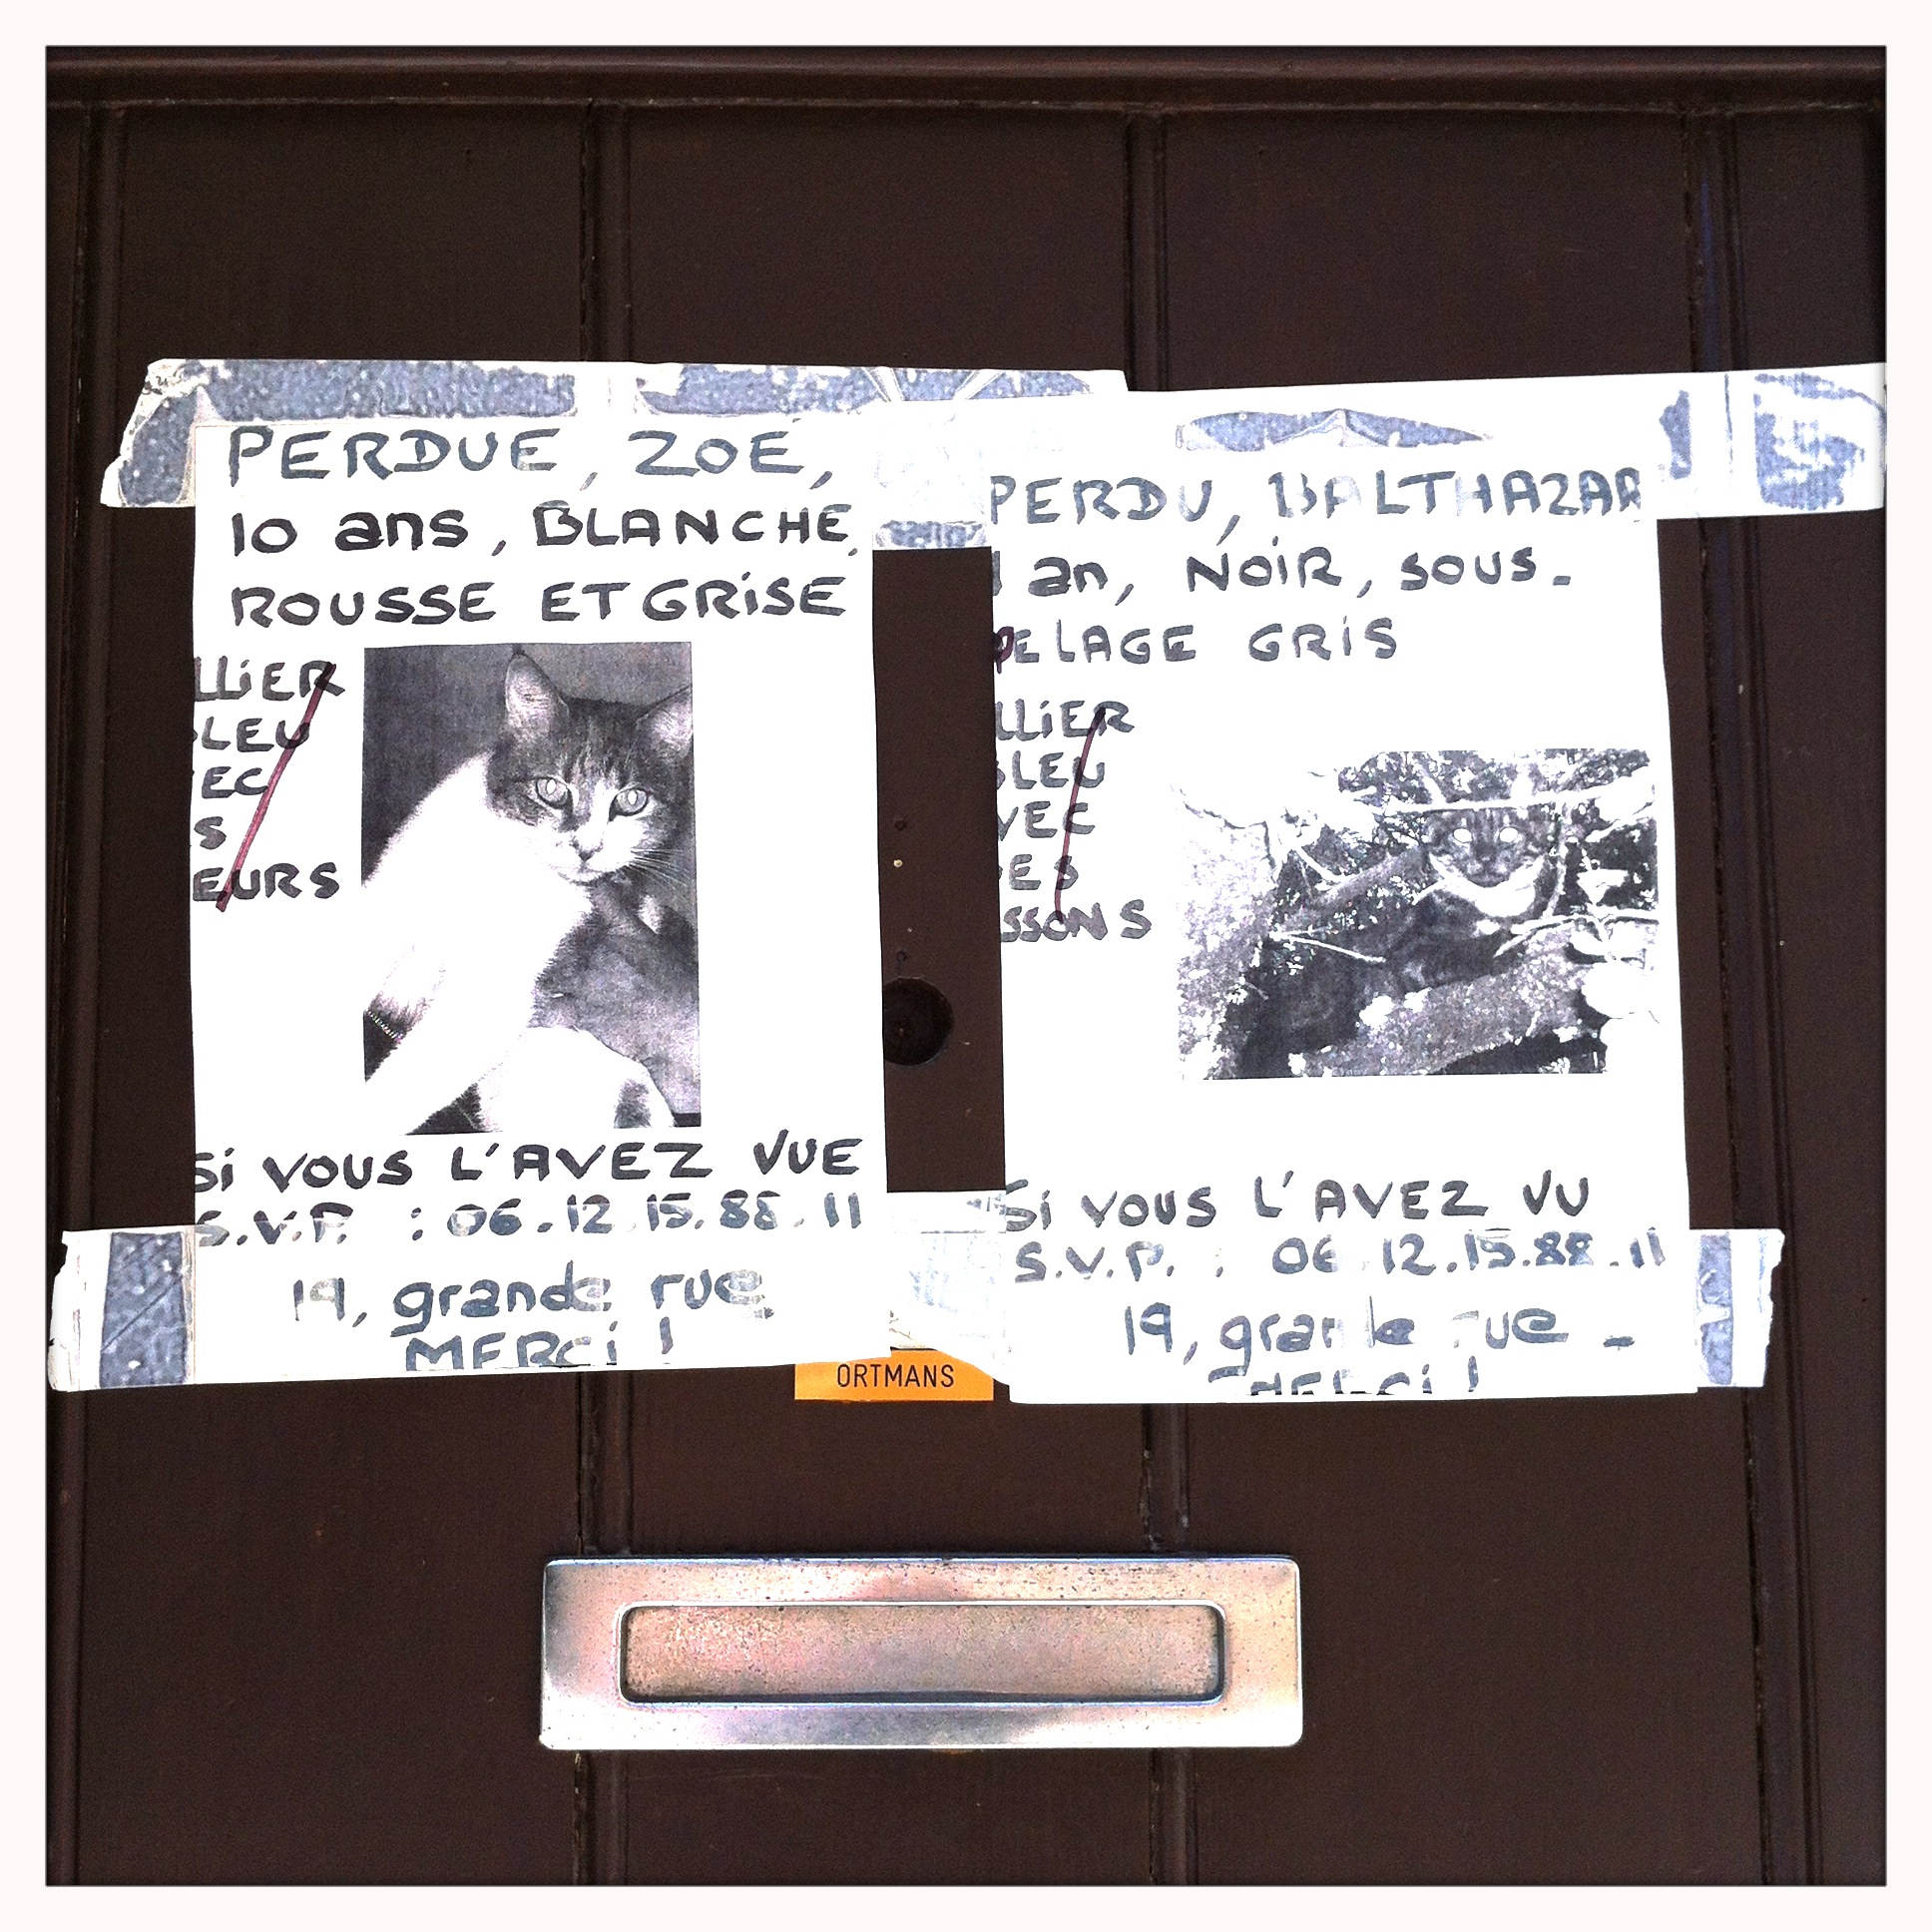 PERDUE, ZOÉ,
10 ans, BLANCHE,
ROUSSE ET GRISE
LLIER
LEU
EC
S
EURS
SI VOUS L'AVEZ VUE
S.V.P. : 06.12.15.88.11
19, grande rue
MERCI !
PERDU, BALTHAZAR
1 an, NOIR, SOUS-
PELAGE GRIS
LLIER
BLEU
VEC
ES
SSONS
SI VOUS L'AVEZ VU
S.V.P. : 06.12.15.88.11
19, grande rue -
MERCI !
ORTMANS